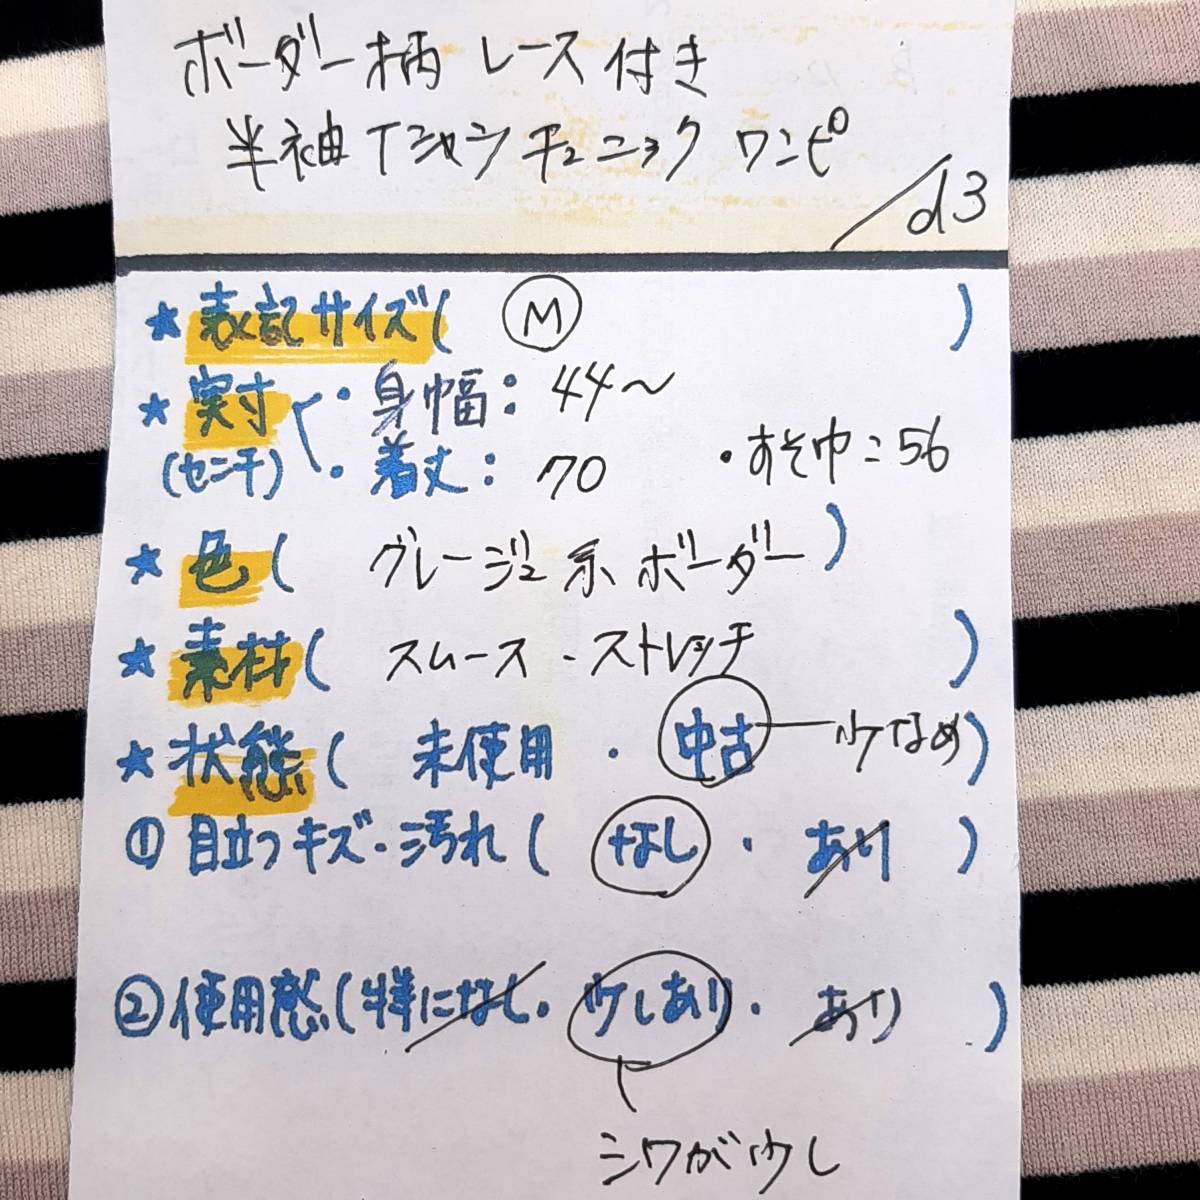 ボーダー柄 レース付き
半袖Tシャツ チュニック ワンピ
d3
★表記サイズ( M )
★実寸 ・身幅: 44〜
(センチ) ・着丈: 70 ・すそ巾: 56
★色( グレージュ系 ボーダー )
★素材( スムース・ストレッチ )
★状態( 未使用 ・ 中古 少なめ )
①目立つキズ・汚れ( なし ・ あり )
②使用感(特になし・少しあり・あり )
シワが少し